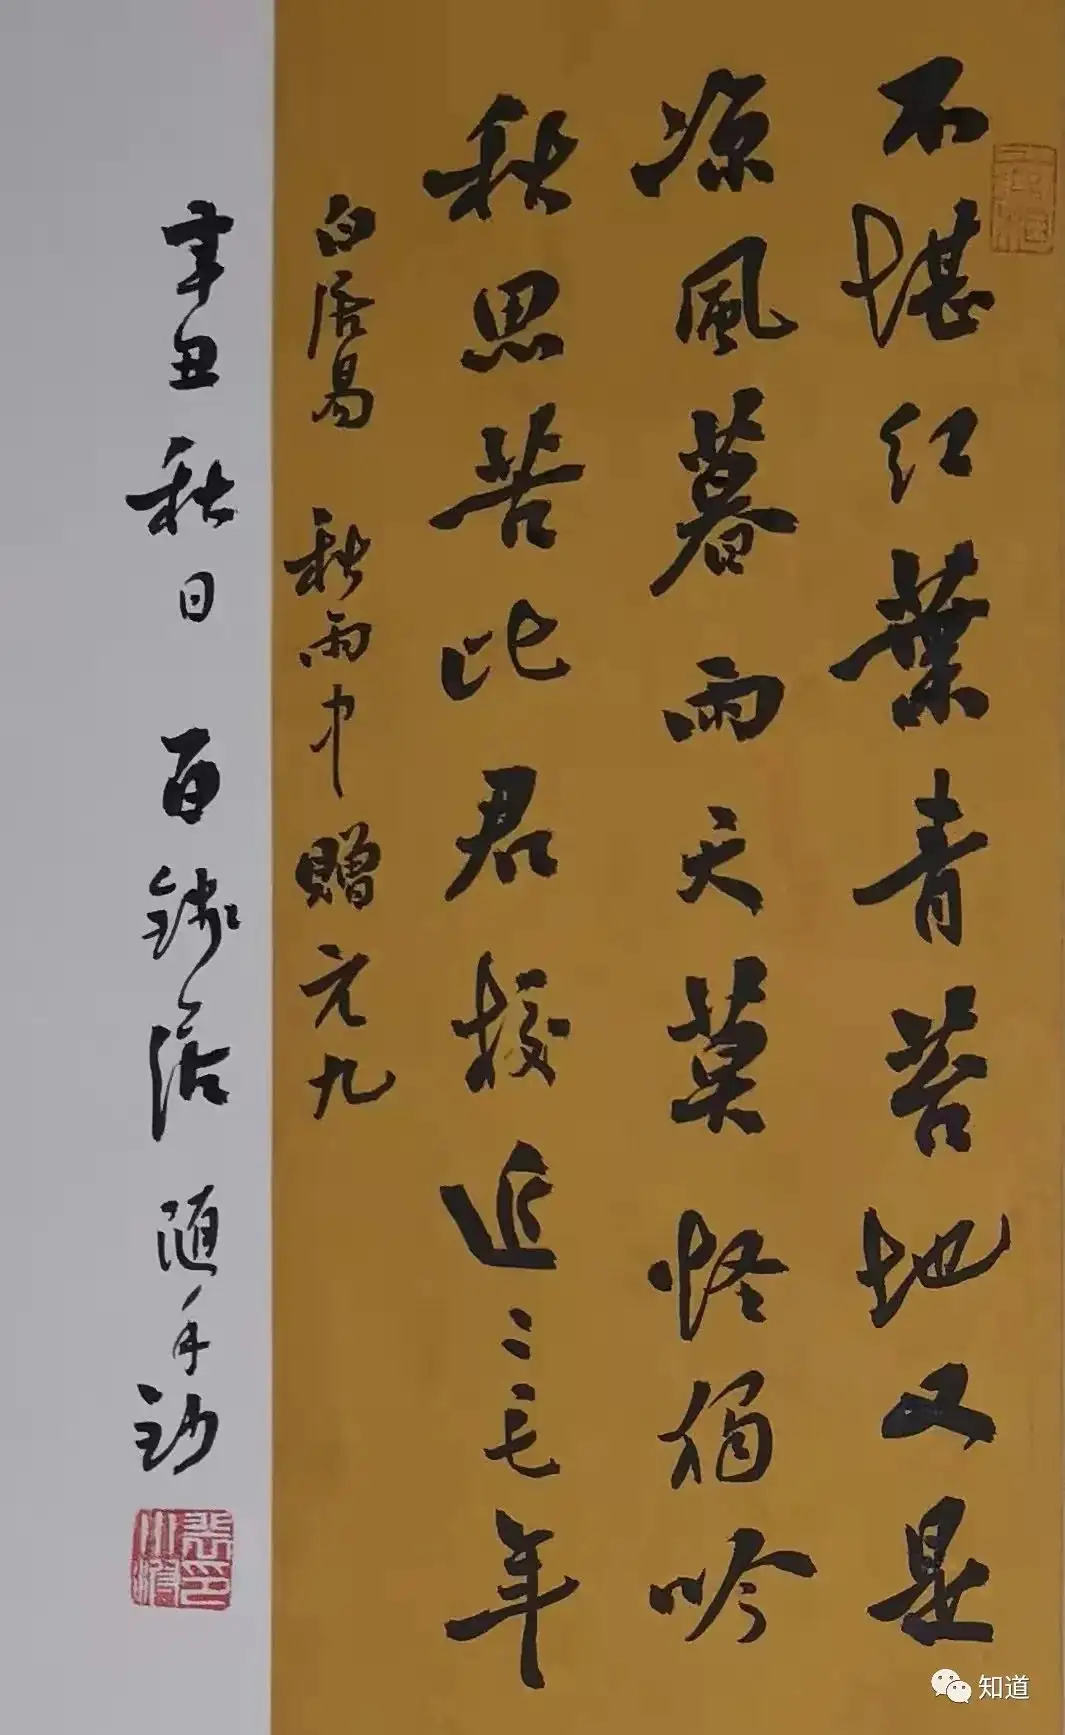 不堪红葉青苔地又是
凉風暮雨天莫怪獨吟
秋思苦比君校近二毛年
白居易 秋雨中贈元九
辛丑秋日 百 居 随手鈔
知道